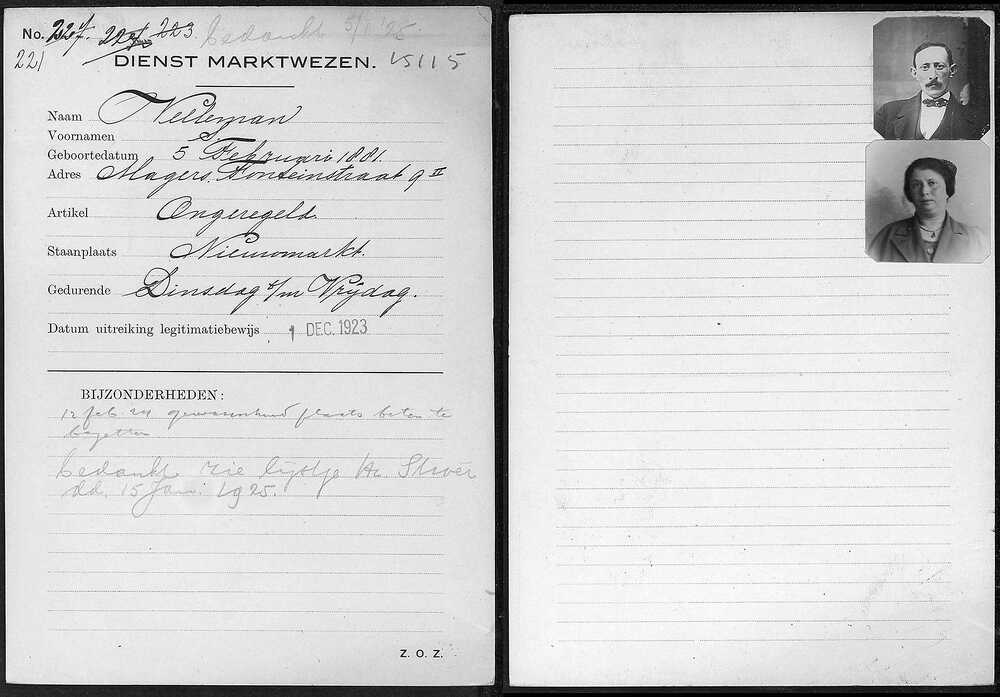 No. 227. 224 223. bedankt 5/1 '25
221 DIENST MARKTWEZEN. 15115
Naam Neeleman
Voornamen S.
Geboortedatum 5 Februari 1881.
Adres Magers. Fonteinstraat 9 II
Artikel Ongeregeld.
Staanplaats Nieuwmarkt.
Gedurende Dinsdag t/m Vrijdag.
Datum uitreiking legitimatiebewijs 1 DEC. 1923
BIJZONDERHEDEN:
12 feb. 24 gewaarschuwd plaats beter te
bezetten
bedankt zie lijstje
dd. 15 Jan. 1925.
Z. O. Z.